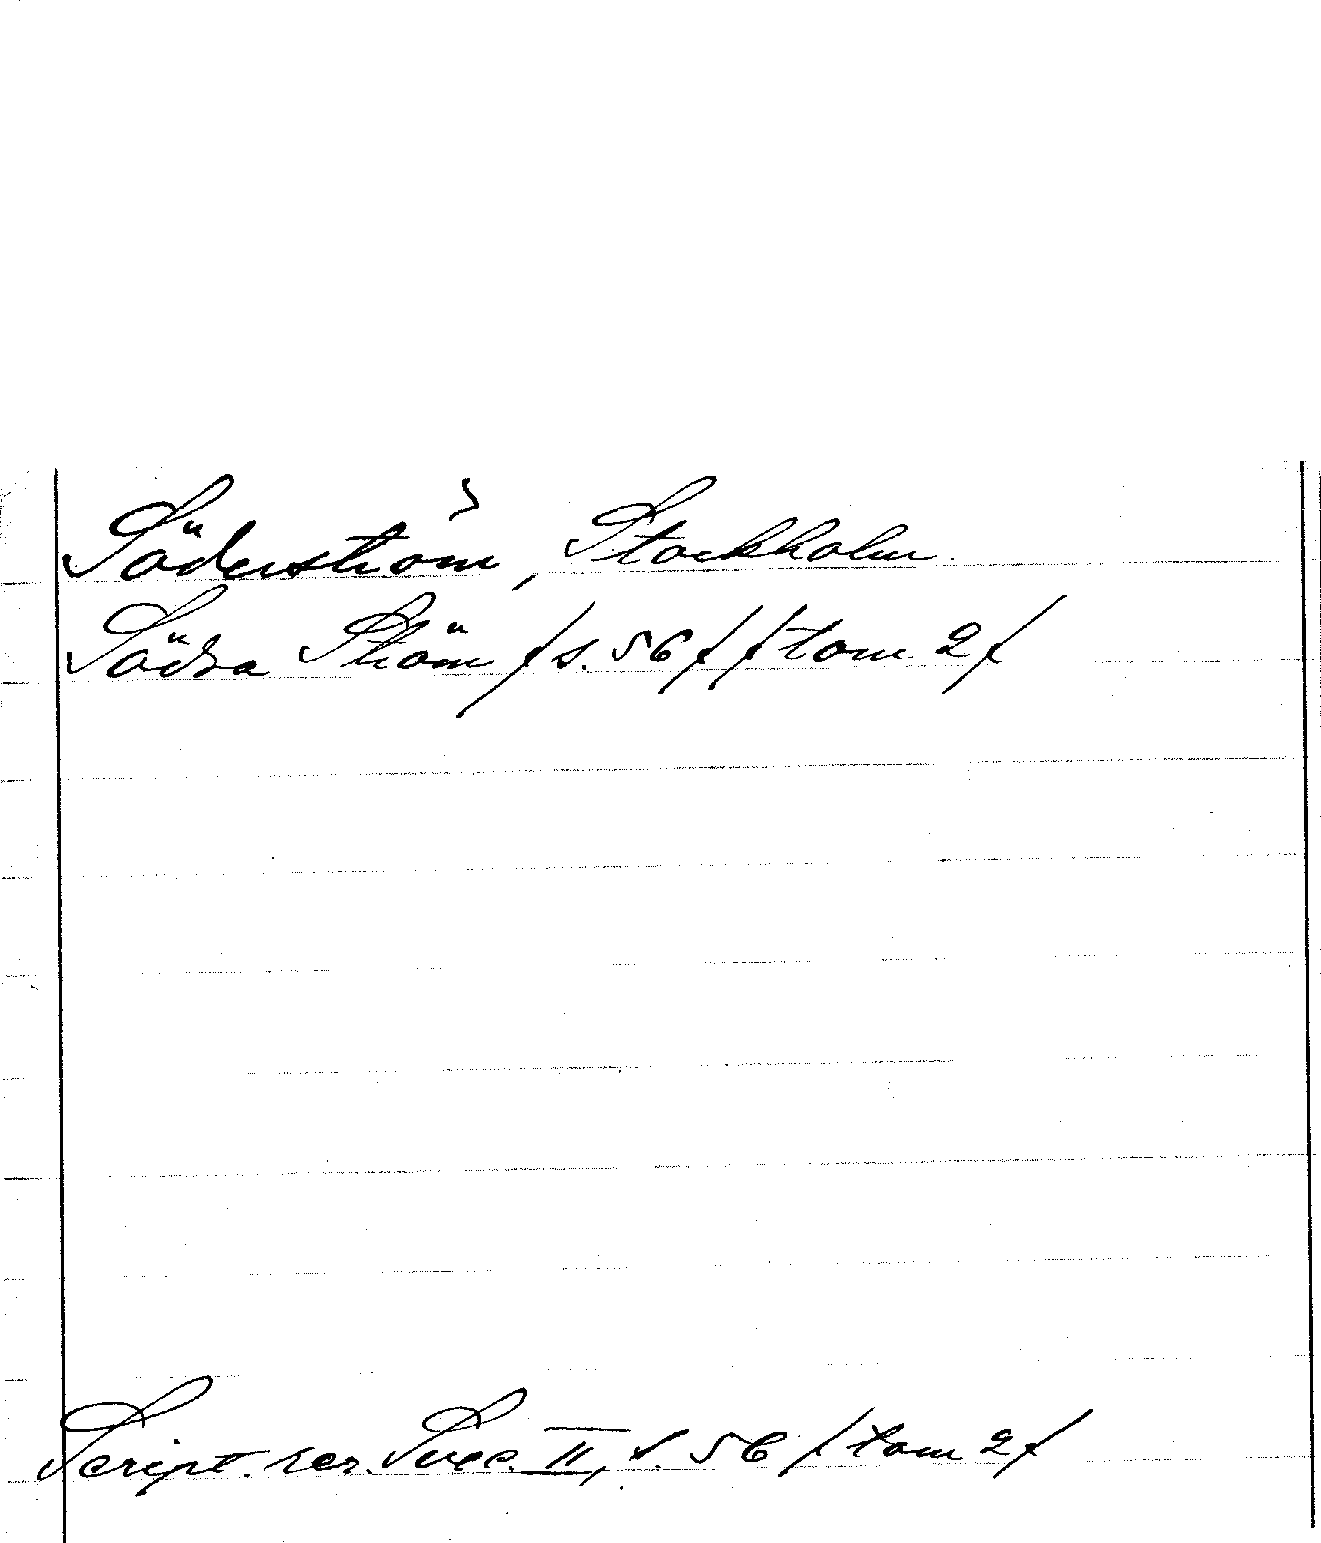 Söderström, Stockholm.
Södra Ström /s. 56/ /tom 2/
Script. rer. Svec. II, s. 56 /tom 2/